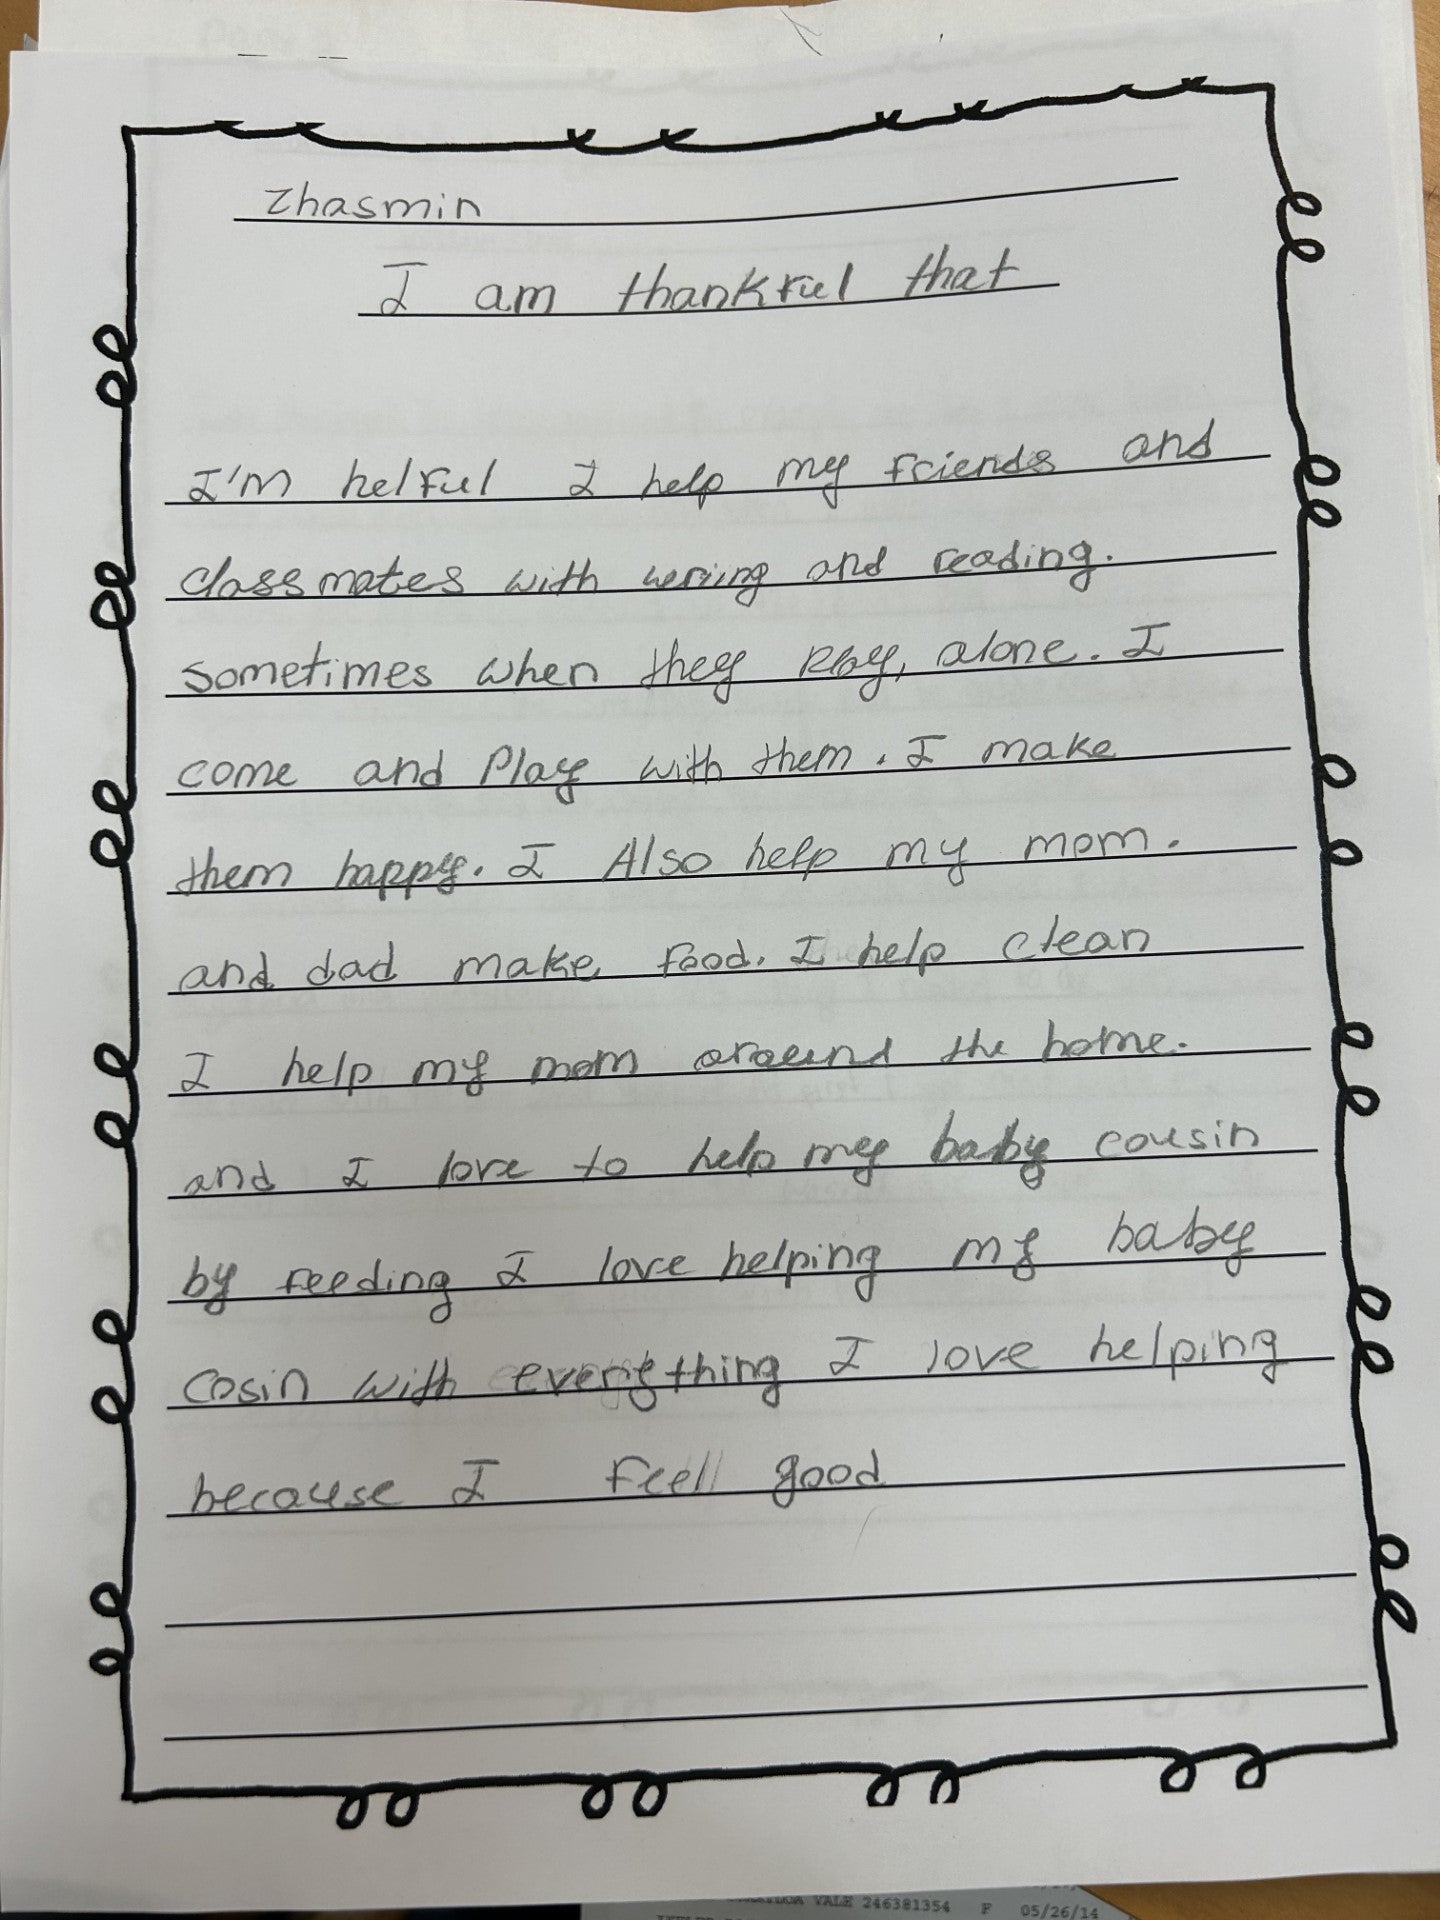 Zhasmin
I am thankful that
I'm helful I help my friends and
classmates with wriing and reading.
sometimes when they play, alone. I
come and Play with them. I make
them happy. I Also help my mom.
and dad make food. I help clean
I help my mom around the home.
and I love to help my baby cousin
by feeding I love helping my baby
cosin with everything I love helping
because I feel good
VALE 246381354 F 05/26/14